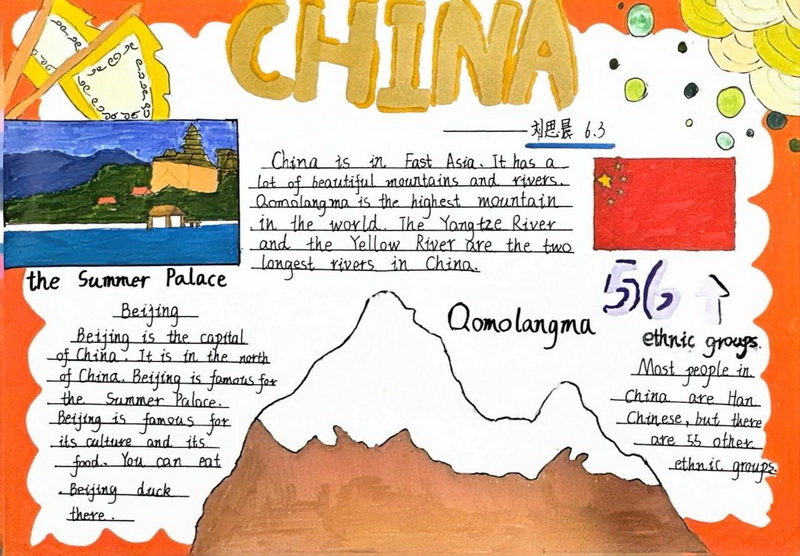 CHINA
刘思晨 6.3
China is in East Asia. It has a
lot of beautiful mountains and rivers.
Qomolangma is the highest mountain
in the world. The Yangtze River
and the Yellow River are the two
longest rivers in China.
the Summer Palace
Beijing
Beijing is the capital
of China. It is in the north
of China. Beijing is famous for
the Summer Palace.
Beijing is famous for
its culture and its
food. You can eat
Beijing duck
there.
Qomolangma
56个
ethnic groups.
Most people in
China are Han
Chinese, but there
are 55 other
ethnic groups.